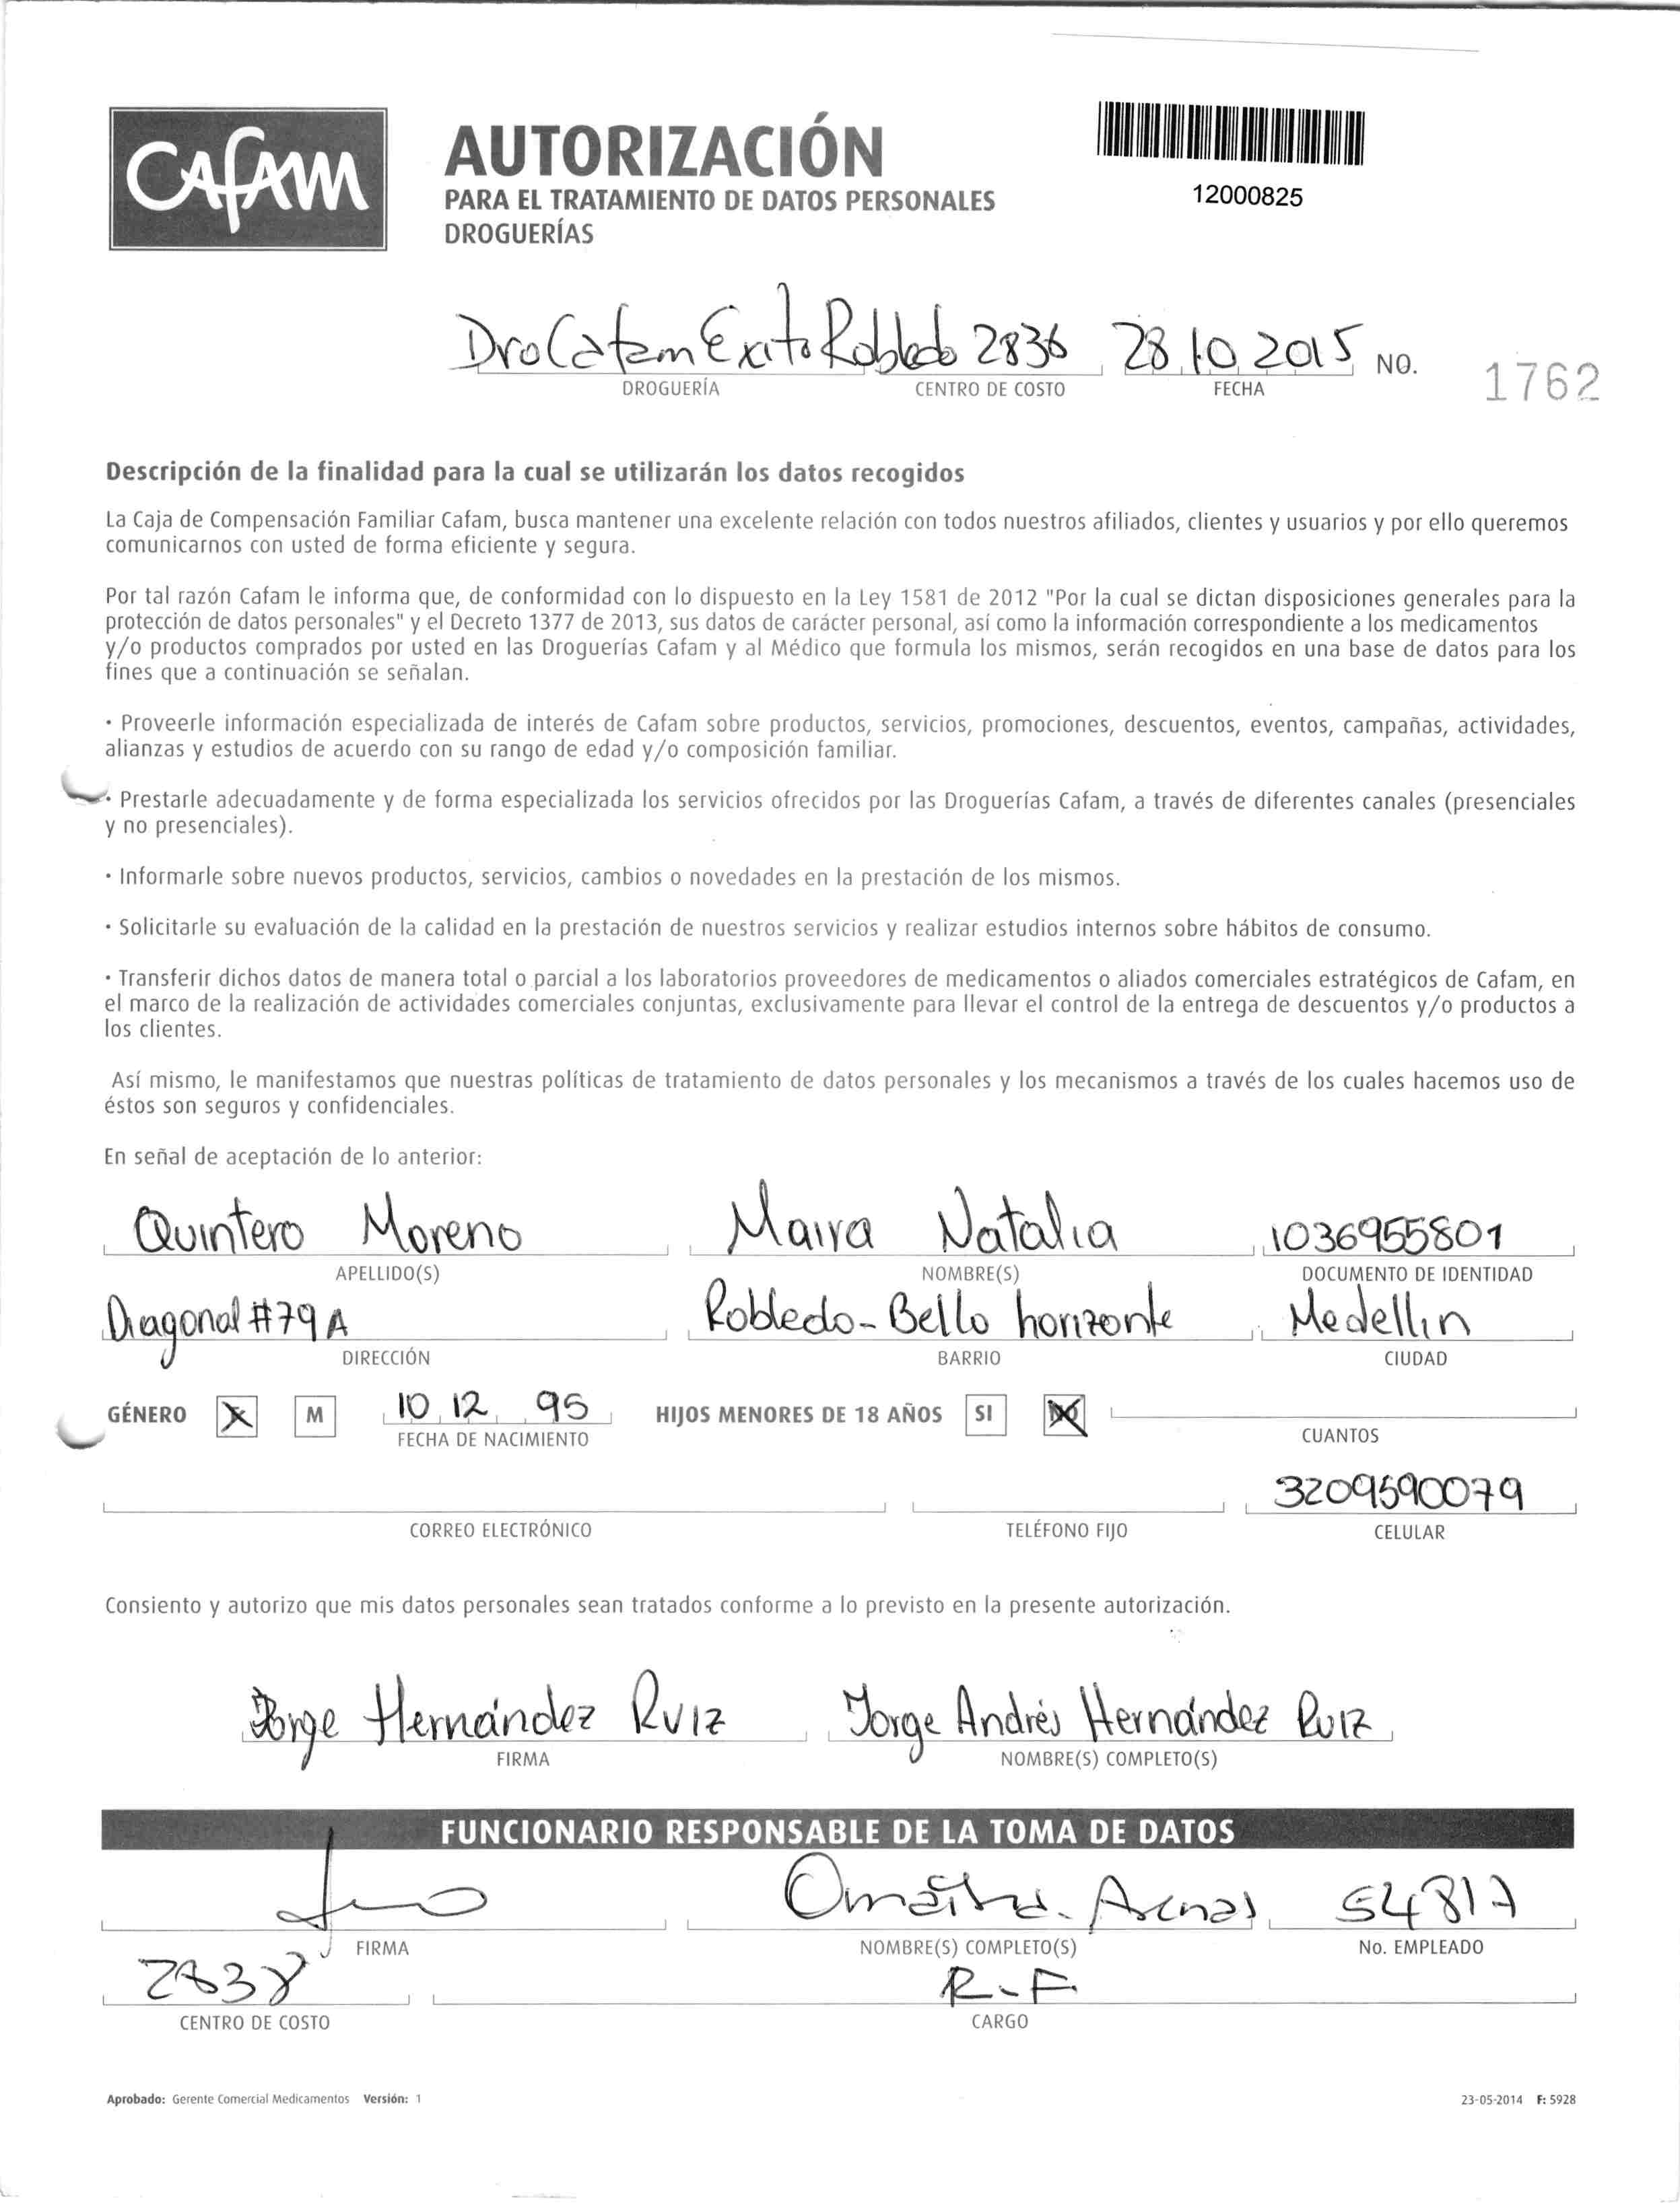 CAFAM
AUTORIZACIÓN
PARA EL TRATAMIENTO DE DATOS PERSONALES
DROGUERÍAS
12000825
DroCafam Exito Robledo 2836 28 10 2015 NO. 1762
DROGUERÍA CENTRO DE COSTO FECHA
Descripción de la finalidad para la cual se utilizarán los datos recogidos
La Caja de Compensación Familiar Cafam, busca mantener una excelente relación con todos nuestros afiliados, clientes y usuarios y por ello queremos
comunicarnos con usted de forma eficiente y segura.
Por tal razón Cafam le informa que, de conformidad con lo dispuesto en la Ley 1581 de 2012 "Por la cual se dictan disposiciones generales para la
protección de datos personales" y el Decreto 1377 de 2013, sus datos de carácter personal, así como la información correspondiente a los medicamentos
y/o productos comprados por usted en las Droguerías Cafam y al Médico que formula los mismos, serán recogidos en una base de datos para los
fines que a continuación se señalan.
· Proveerle información especializada de interés de Cafam sobre productos, servicios, promociones, descuentos, eventos, campañas, actividades,
alianzas y estudios de acuerdo con su rango de edad y/o composición familiar.
· Prestarle adecuadamente y de forma especializada los servicios ofrecidos por las Droguerías Cafam, a través de diferentes canales (presenciales
y no presenciales).
· Informarle sobre nuevos productos, servicios, cambios o novedades en la prestación de los mismos.
· Solicitarle su evaluación de la calidad en la prestación de nuestros servicios y realizar estudios internos sobre hábitos de consumo.
· Transferir dichos datos de manera total o parcial a los laboratorios proveedores de medicamentos o aliados comerciales estratégicos de Cafam, en
el marco de la realización de actividades comerciales conjuntas, exclusivamente para llevar el control de la entrega de descuentos y/o productos a
los clientes.
Así mismo, le manifestamos que nuestras políticas de tratamiento de datos personales y los mecanismos a través de los cuales hacemos uso de
éstos son seguros y confidenciales.
En señal de aceptación de lo anterior:
Quintero Moreno Maira Natalia 1036955801
APELLIDO(S) NOMBRE(S) DOCUMENTO DE IDENTIDAD
Diagonal #79 A Robledo - Bello horizonte Medellin
DIRECCIÓN BARRIO CIUDAD
GÉNERO X M 10 12 95 HIJOS MENORES DE 18 AÑOS SI NO
FECHA DE NACIMIENTO CUANTOS
3209590079
CORREO ELECTRÓNICO TELÉFONO FIJO CELULAR
Consiento y autorizo que mis datos personales sean tratados conforme a lo previsto en la presente autorización.
Jorge Hernández Ruiz Jorge Andrés Hernández Ruiz
FIRMA NOMBRE(S) COMPLETO(S)
FUNCIONARIO RESPONSABLE DE LA TOMA DE DATOS
Omaira. Arenas 54817
FIRMA NOMBRE(S) COMPLETO(S) No. EMPLEADO
2838 R-F
CENTRO DE COSTO CARGO
Aprobado: Gerente Comercial Medicamentos Versión: 1 23-05-2014 F: 5928